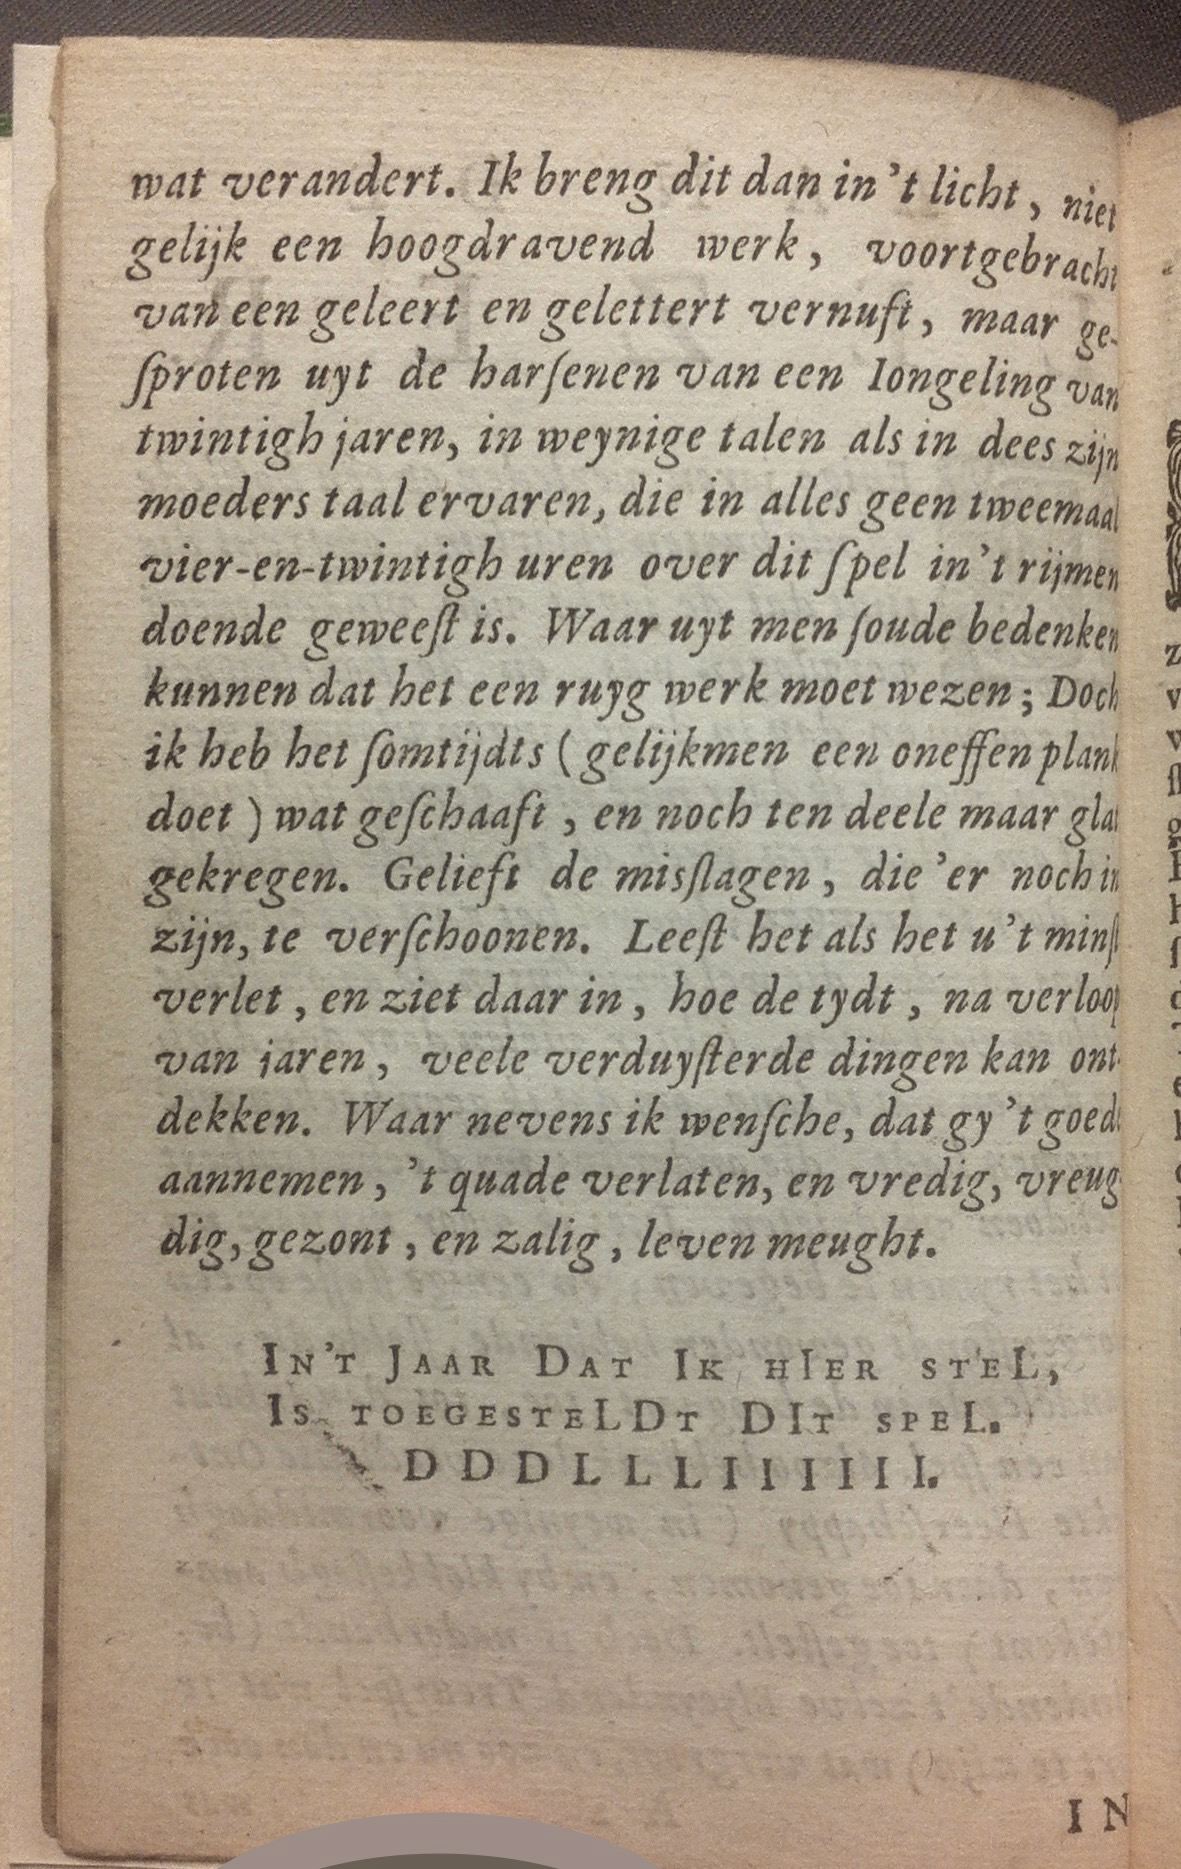 wat verandert. Ik breng dit dan in 't licht, niet
gelijk een hoogdravend werk, voortgebracht
van een geleert en gelettert vernuft, maar ge-
ſproten uyt de harſenen van een Iongeling van
twintigh jaren, in weynige talen als in dees zijn
moeders taal ervaren, die in alles geen tweemaal
vier-en-twintigh uren over dit ſpel in't rijmen
doende geweeſt is. Waar uyt men ſoude bedenken
kunnen dat het een ruyg werk moet wezen; Doch
ik heb het ſomtijdts (gelijkmen een oneffen plank
doet) wat geſchaaft, en noch ten deele maar glat
gekregen. Gelieft de misſlagen, die 'er noch in
zijn, te verſchoonen. Leeſt het als het u 't minſt
verlet, en ziet daar in, hoe de tydt, na verloop
van jaren, veele verduyſterde dingen kan ont-
dekken. Waar nevens ik wenſche, dat gy 't goede
aannemen, 't quade verlaten, en vredig, vreug-
dig, gezont, en zalig, leven meught.
IN'T JAAR DAT IK HIER STEL,
IS TOEGESTELDT DIT SPEL.
DDDLLLIIIIII.
IN